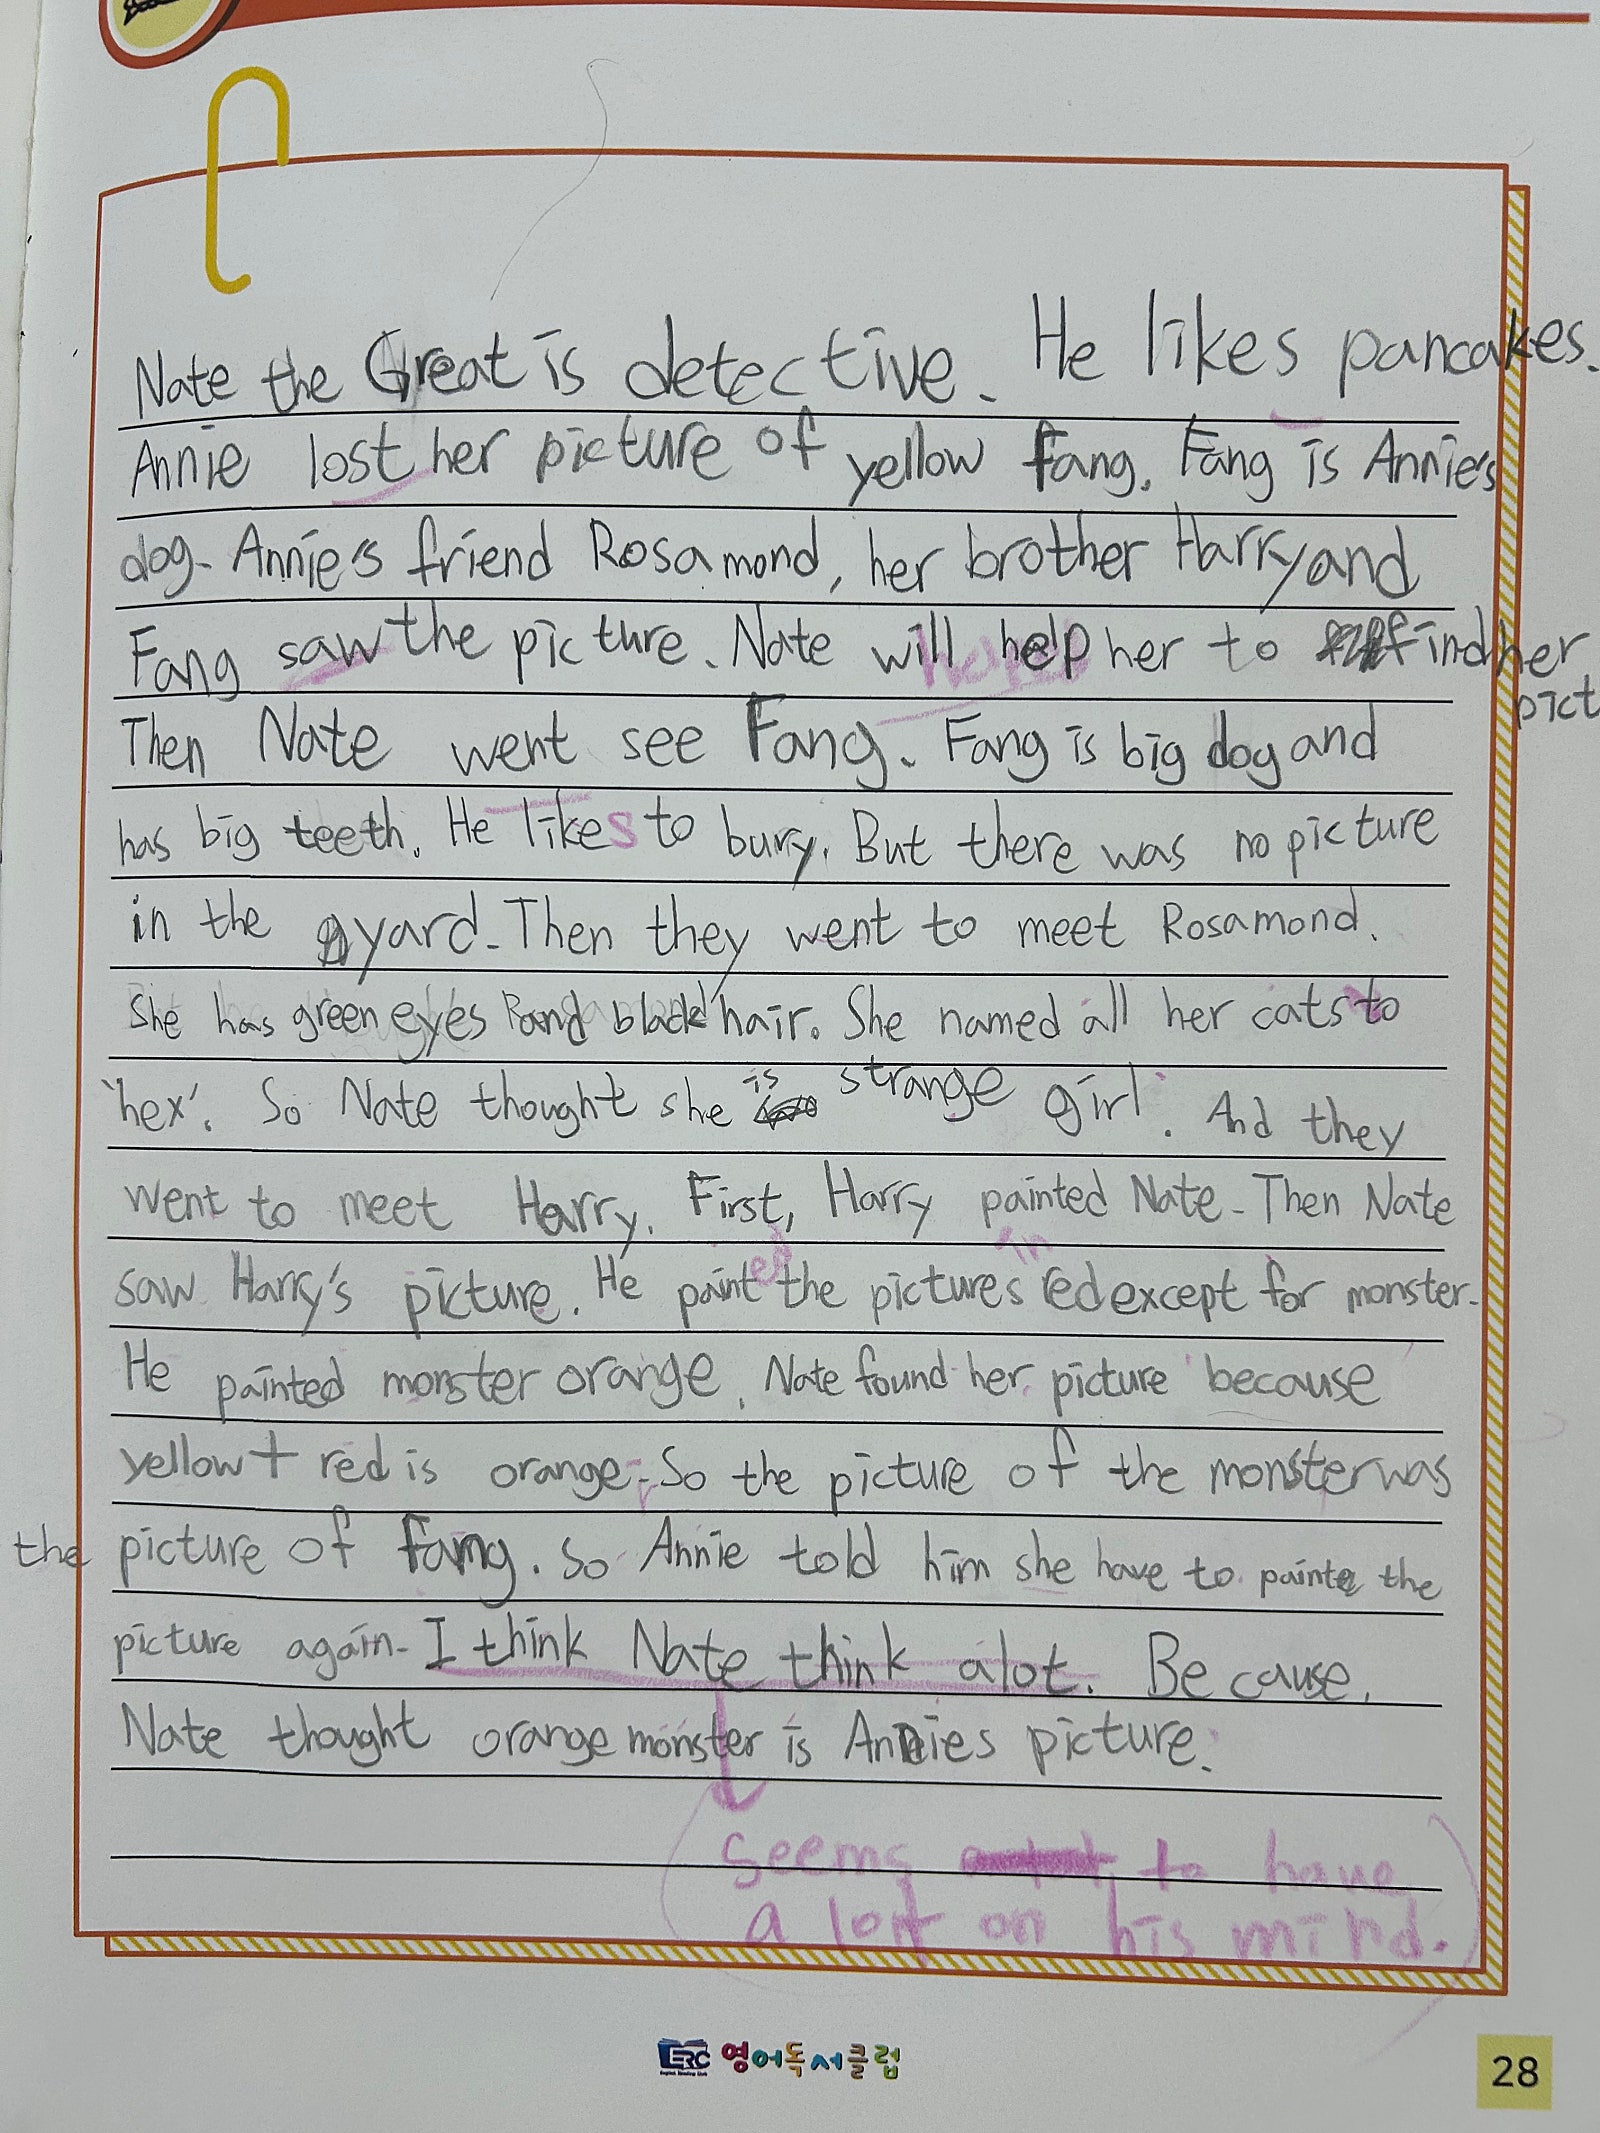 Nate the Great is detective. He likes pancakes.
Annie lost her picture of yellow Fang. Fang is Annie's
dog. Annie's friend Rosamond, her brother Harry and
Fang saw the picture. Nate will help her to find her
pict
Then Nate went see Fang. Fang is big dog and
has big teeth. He likes to bury. But there was no picture
in the yard. Then they went to meet Rosamond.
She has green eyes and black hair. She named all her cats to
'hex'. So Nate thought she is strange girl. And they
went to meet Harry. First, Harry painted Nate. Then Nate
saw Harry's picture. He painted the pictures in red except for monster.
He painted monster orange. Nate found her picture because
yellow + red is orange. So the picture of the monster was
the picture of Fang. So Annie told him she have to paint the
picture again. I think Nate think alot. Be cause,
Nate thought orange monster is Annies picture.
seems to have
a lot on his mind.
ERC 영어독서클럽
28